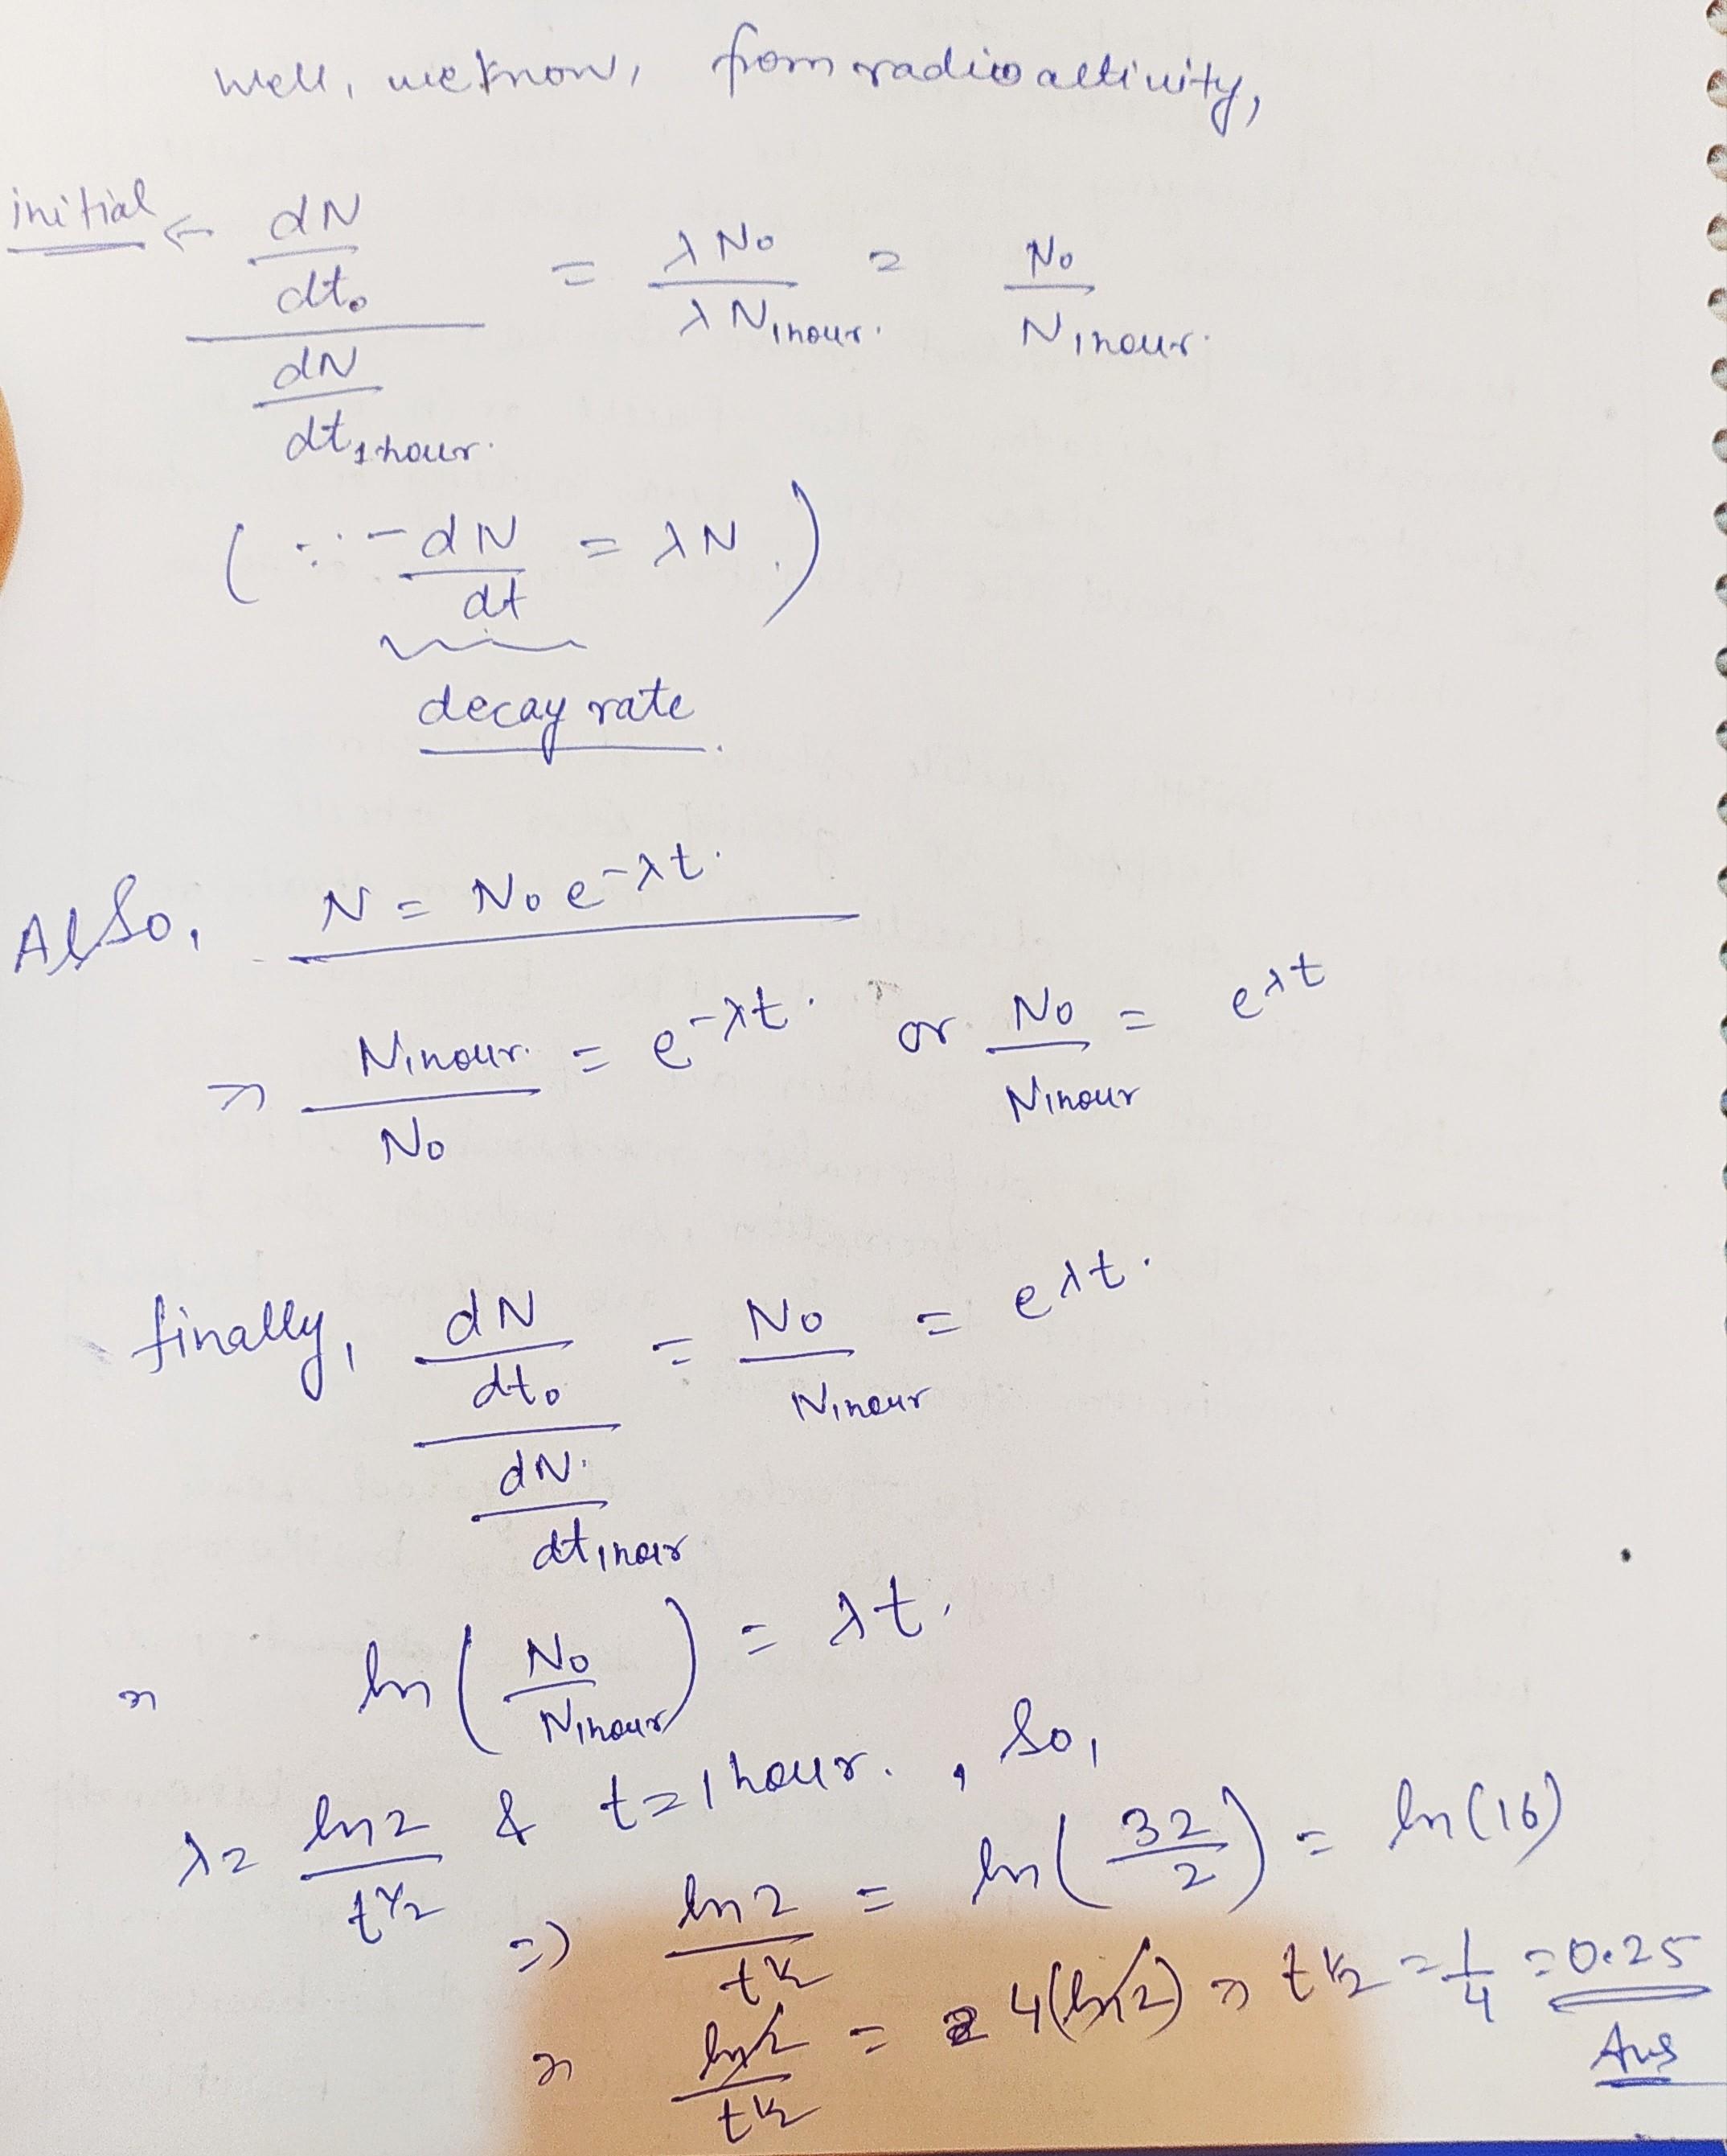 Well, we know, from radioactivity,
initial ← dN/dt₀ / dN/dt₁ hour. = λN₀/λN₁hour. = N₀/N₁hour.
(∵ -dN/dt = λN.)
decay rate.
Also, N = N₀e^-λt.
⇒ N₁hour./N₀ = e^-λt. or N₀/N₁hour = e^λt
finally, dN/dt₀ / dN./dt₁hour = N₀/N₁hour = e^λt.
⇒ ln(N₀/N₁hour) = λt.
λ = ln2/t½ & t=1hour. , So,
⇒ ln2/t½ = ln(32/2) = ln(16)
⇒ ln2/t½ = 4(ln2) ⇒ t½ = 1/4 = 0.25
Ans